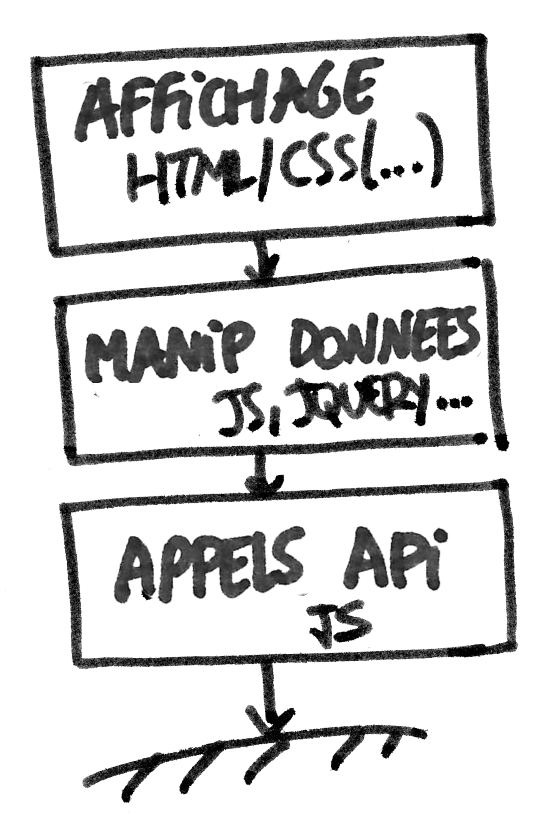 AFFiCHAGE
HTML/CSS(...)
MANiP DONNEES
JS, JQUERY...
APPELS APi
JS